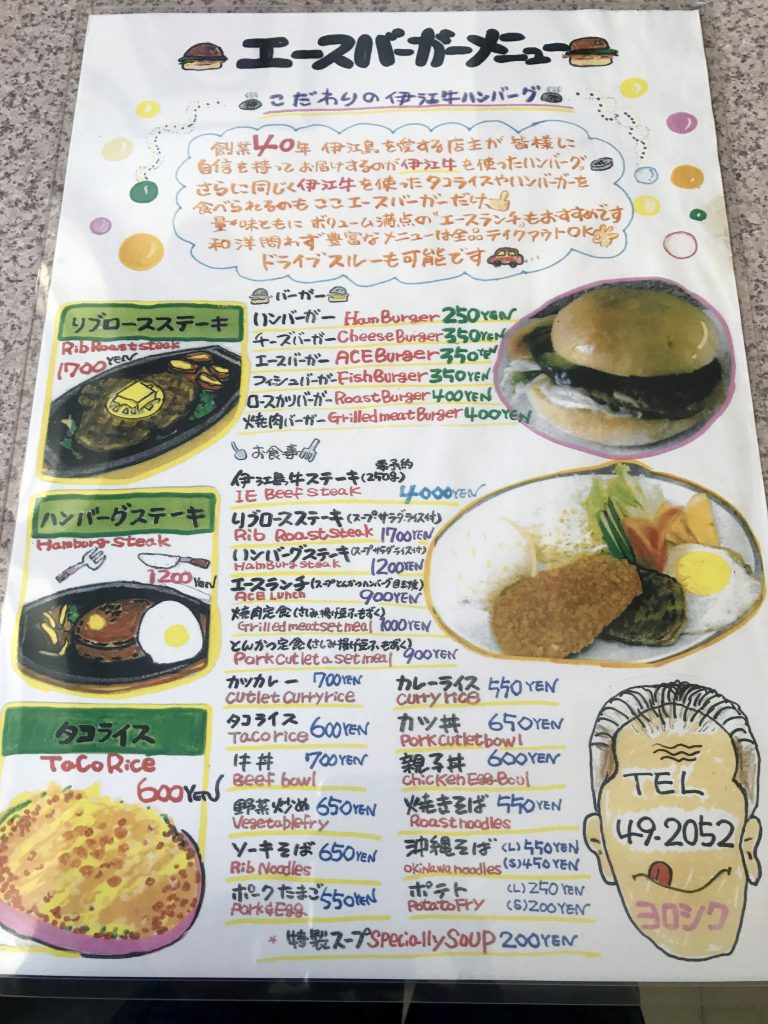 エースバーガーメニュー
こだわりの伊江牛ハンバーグ
創業40年 伊江島を愛する店主が皆様に
自信を持ってお届けするのが伊江牛を使ったハンバーグ。
さらに同じく伊江牛を使ったタコライスやハンバーガーを
食べられるのもここエースバーガーだけ
量・味ともにボリューム満点の"エースランチ"もおすすめです
和洋問わず豊富なメニューは全品テイクアウトOK
ドライブスルーも可能です
リブロースステーキ
Rib Roast steak
1700YEN
バーガー
ハンバーガー HamBurger 250YEN
チーズバーガー CheeseBurger 350YEN
エースバーガー ACEBurger 350YEN
フィシュバーガー FishBurger 350YEN
ロースカツバーガー RoastBurger 400YEN
焼肉バーガー Grilled meat Burger 400YEN
お食事
要予約
伊江島牛ステーキ(250g)
IE Beef steak 4000YEN
リブロースステーキ(スープサラダライス付)
Rib Roast steak 1700YEN
ハンバーグステーキ(スープサラダライス付)
Hamburg steak 1200YEN
エースランチ(スープとんかつハンバーグ目玉焼)
ACE Lunch 900YEN
焼肉定食(さしみ揚げ豆腐もずく)
Grilled meat set meal 1000YEN
とんかつ定食(さしみ揚げ豆腐もずく)
Pork cutlet a set meal 900YEN
ハンバーグステーキ
Hamburg steak
1200YEN
カツカレー 700YEN
cutlet curry rice
カレーライス 550YEN
curry rice
タコライス 600YEN
Taco rice
カツ丼 650YEN
Pork cutlet bowl
牛丼 700YEN
Beef bowl
親子丼 600YEN
Chicken Egg Boul
野菜炒め 650YEN
Vegetable fry
焼きそば 550YEN
Roast noodles
ソーキそば 650YEN
Rib Noodles
沖縄そば (L)550YEN
okinawa noodles (S)450YEN
ポークたまご 550YEN
Pork & Egg
ポテト (L)250YEN
Potato Fry (S)200YEN
特製スープ Specially SOUP 200YEN
タコライス
Taco Rice
600YEN
TEL
49.2052
ヨロシク